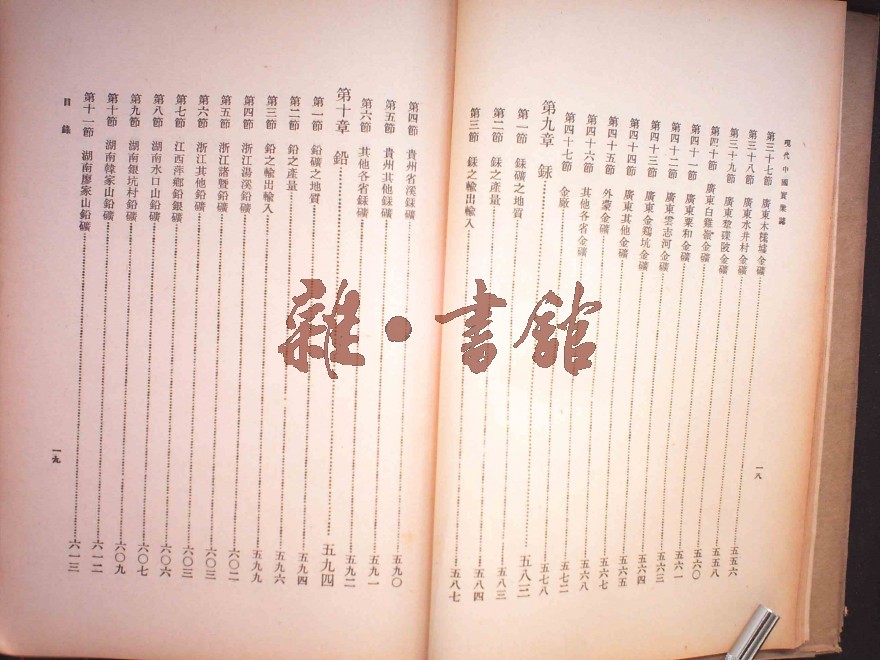 現代中國實業誌
第三十七節 廣東木樣墟金礦 五五六
第三十八節 廣東水井村金礦
第三十九節 廣東犂碟陂金礦 五五八
第四十節 廣東白雞嶺金礦 五六〇
第四十一節 廣東粟和金礦 五六一
第四十二節 廣東雲志河金礦 五六三
第四十三節 廣東金鷄坑金礦 五六四
第四十四節 廣東其他金礦 五六五
第四十五節 外蒙金礦 五六七
第四十六節 其他各省金礦 五六八
第四十七節 金廠 五七二
第九章 銾 五七八
第一節 銾礦之地質 五八三
第二節 銾之產量 五八三
第三節 銾之輸出輸入 五八四
五八七
一八
雜·書舘
第四節 貴州省溪銾礦 五九〇
第五節 貴州其他銾礦 五九一
第六節 其他各省銾礦 五九二
第十章 鉛 五九四
第一節 鉛礦之地質 五九四
第二節 鉛之產量 五九六
第三節 鉛之輸出輸入 五九九
第四節 浙江湯溪鉛礦 六〇二
第五節 浙江諸暨鉛礦 六〇三
第六節 浙江其他鉛礦 六〇三
第七節 江西萍鄉鉛銀礦 六〇六
第八節 湖南水口山鉛礦 六〇七
第九節 湖南銀坑村鉛礦 六〇九
第十節 湖南韓家山鉛礦 六一二
第十一節 湖南廖家山鉛礦 六一三
目錄
一九